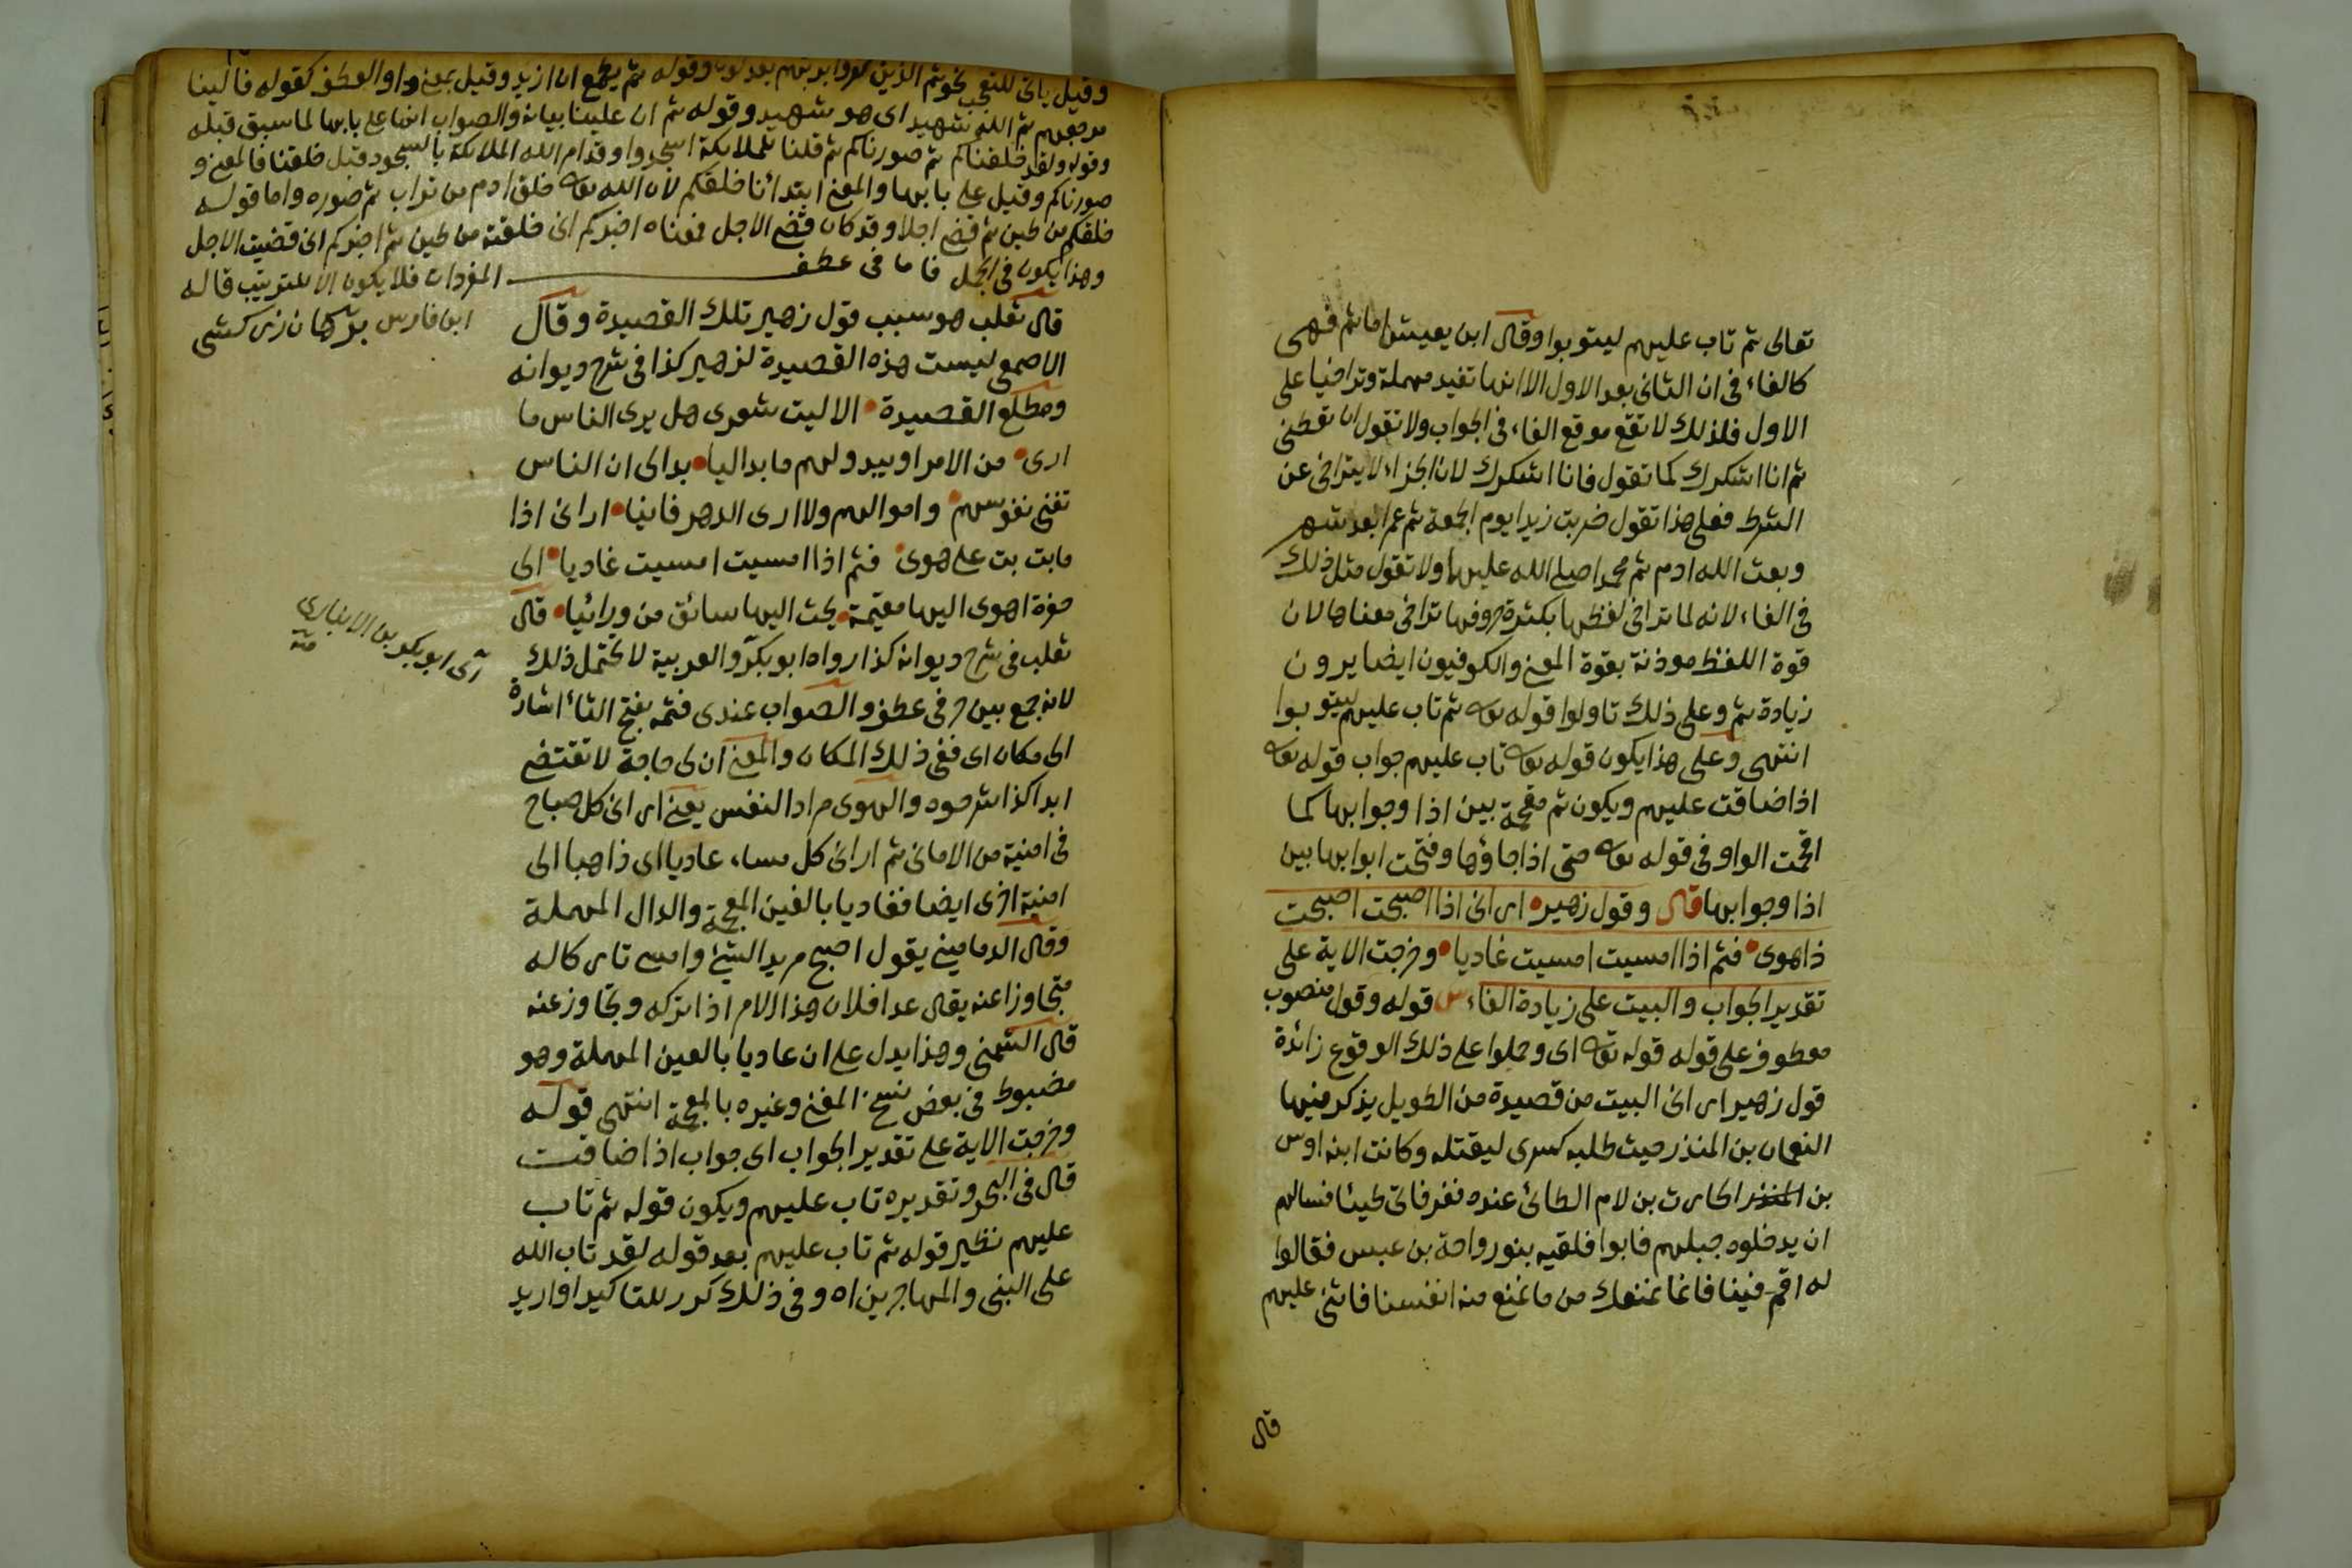 تعالى ثم تاب عليهم ليتوبوا وقال ابن يعيش اما ثم فهى
كالفاء فى ان الثانى بعد الاول الا انها تفيد مهملة وتراخيا على
الاول فلذلك لا تقع موقع الفاء فى الجواب ولا تقول ان تعطنى
ثم انا اشكرك كما تقول فانا اشكرك لان الجزاء لا يتراخى عن
الشرط فعلى هذا تقول ضربت زيدا يوم الجمعة ثم عمرا بعد شهر
وبعث الله ادم ثم محمدا صلى الله عليهما ولا تقول مثل ذلك
فى الفاء لانه لما تراخى لفظها بكثرة حروفها تراخى معناها لان
قوة اللفظ موذنة بقوة المعنى والكوفيون ايضا يرون
زيادة ثم وعلى ذلك تاولوا قوله تعه ثم تاب عليهم ليتوبوا
انتهى وعلى هذا يكون قوله تعه تاب عليهم جواب قوله تعه
اذا ضاقت عليهم ويكون ثم مقحمة بين اذا وجوابها كما
اقحمت الواو فى قوله تعه حتى اذا جاؤها وفتحت ابوابها بين
اذا وجوابها قال وقول زهير ارانى اذا اصبحت اصبحت
ذا هوى فثم اذا امسيت امسيت غاديا وخرجت الاية على
تقدير الجواب والبيت على زيادة الفاء ش قوله وقول منصوب
معطوف على قوله قوله تعه اى وحملوا على ذلك الوقوع زائدة
قول زهير ارانى البيت من قصيدة من الطويل يذكر فيها
النعمان بن المنذر حيث طلبه كسرى ليقتله وكانت ابنة اوس
بن المنذر الحارث بن لام الطائى عنده ففر فاتى طيئا فسالهم
ان يدخلوه جبلهم فابوا فلقيه بنو رواحة بن عبس فقالوا
له اقم فينا فانما نمنعك من ما نمنع منه انفسنا فاثنى عليهم
قال
وقيل ياتى للتعجب نحو ثم الذين كفروا بربهم يعدلون وقوله ثم يطمع ان ازيد وقيل بمعنى واو العطف كقوله فالينا
مرجعهم ثم الله شهيد اى هو شهيد وقوله ثم ان علينا بيانه والصواب انها على بابها لما سبق قبله
وقوله ولقد خلقناكم ثم صورناكم ثم قلنا للملائكة اسجدوا وقد امر الله الملائكة بالسجود قبل خلقنا فالمعنى و
صورناكم وقيل على بابها والمعنى ابتدأنا خلقكم لان الله تعه خلق ادم من تراب ثم صوره واما قوله
خلقكم من طين ثم قضى اجلا وقد كان قضى الاجل فمعناه اخبركم انى خلقته من طين ثم اخبركم انى قضيت الاجل
وهذا يكون فى الجمل فاما فى عطف المفردات فلا يكون الا للترتيب قاله
ابن فارس برهان زركشى
قال ثعلب هو سبب قول زهير تلك القصيدة وقال
الاصمعى ليست هذه القصيدة لزهير كذا فى شرح ديوانه
ومطلع القصيدة الا ليت شعرى هل يرى الناس ما
ارى من الامر او يبدو لهم ما بدا ليا بدا لى ان الناس
تفنى نفوسهم واموالهم ولا ارى الدهر فانيا ارانى اذا
ما بت بت على هوى فثم اذا امسيت امسيت غاديا الى
حفرة اهوى اليها مقيمة يحث اليها سائق من ورائيا قال
ثعلب فى شرح ديوانه كذا رواه ابو بكر والعربية لا تحتمل ذلك
اى ابو بكر بن الانبارى
منه
لانه جمع بين حرفى عطف والصواب عندى فثمه بفتح الثاء اشارة
الى مكان اى ففى ذلك المكان والمعنى ان لى حاجة لا تقتضى
ابدا كذا شرحوه والهوى مراد النفس يعنى ارانى كل صباح
فى امنية من الامانى ثم ارانى كل مساء عاديا اى ذاهبا الى
امنية اخرى ايضا فغاديا بالغين المعجمة والدال المهملة
وقال الدمامينى يقول اصبح مريد الشئ وامسى تاركا له
متجاوزا عنه يقال عدا فلان هذا الامر اذا تركه وتجاوز عنه
قال الشمنى وهذا يدل على ان عاديا بالعين المهملة وهو
مضبوط فى بعض نسخ المغنى وغيره بالمعجمة انتهى قوله
وخرجت الاية على تقدير الجواب اى جواب اذا ضاقت
قال فى البحر وتقديره تاب عليهم ويكون قوله ثم تاب
عليهم نظير قوله ثم تاب عليهم بعد قوله لقد تاب الله
على النبى والمهاجرين اه وفى ذلك كرر للتاكيد او اريد